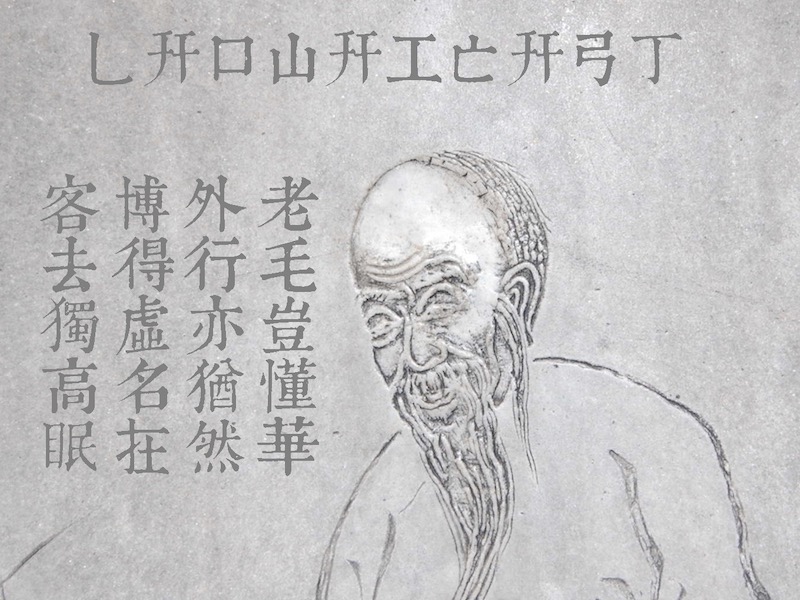 乚幵口山幵工亡幵弓丁
老毛豈懂華
外行亦猶然
博得虛名在
客去獨高眠